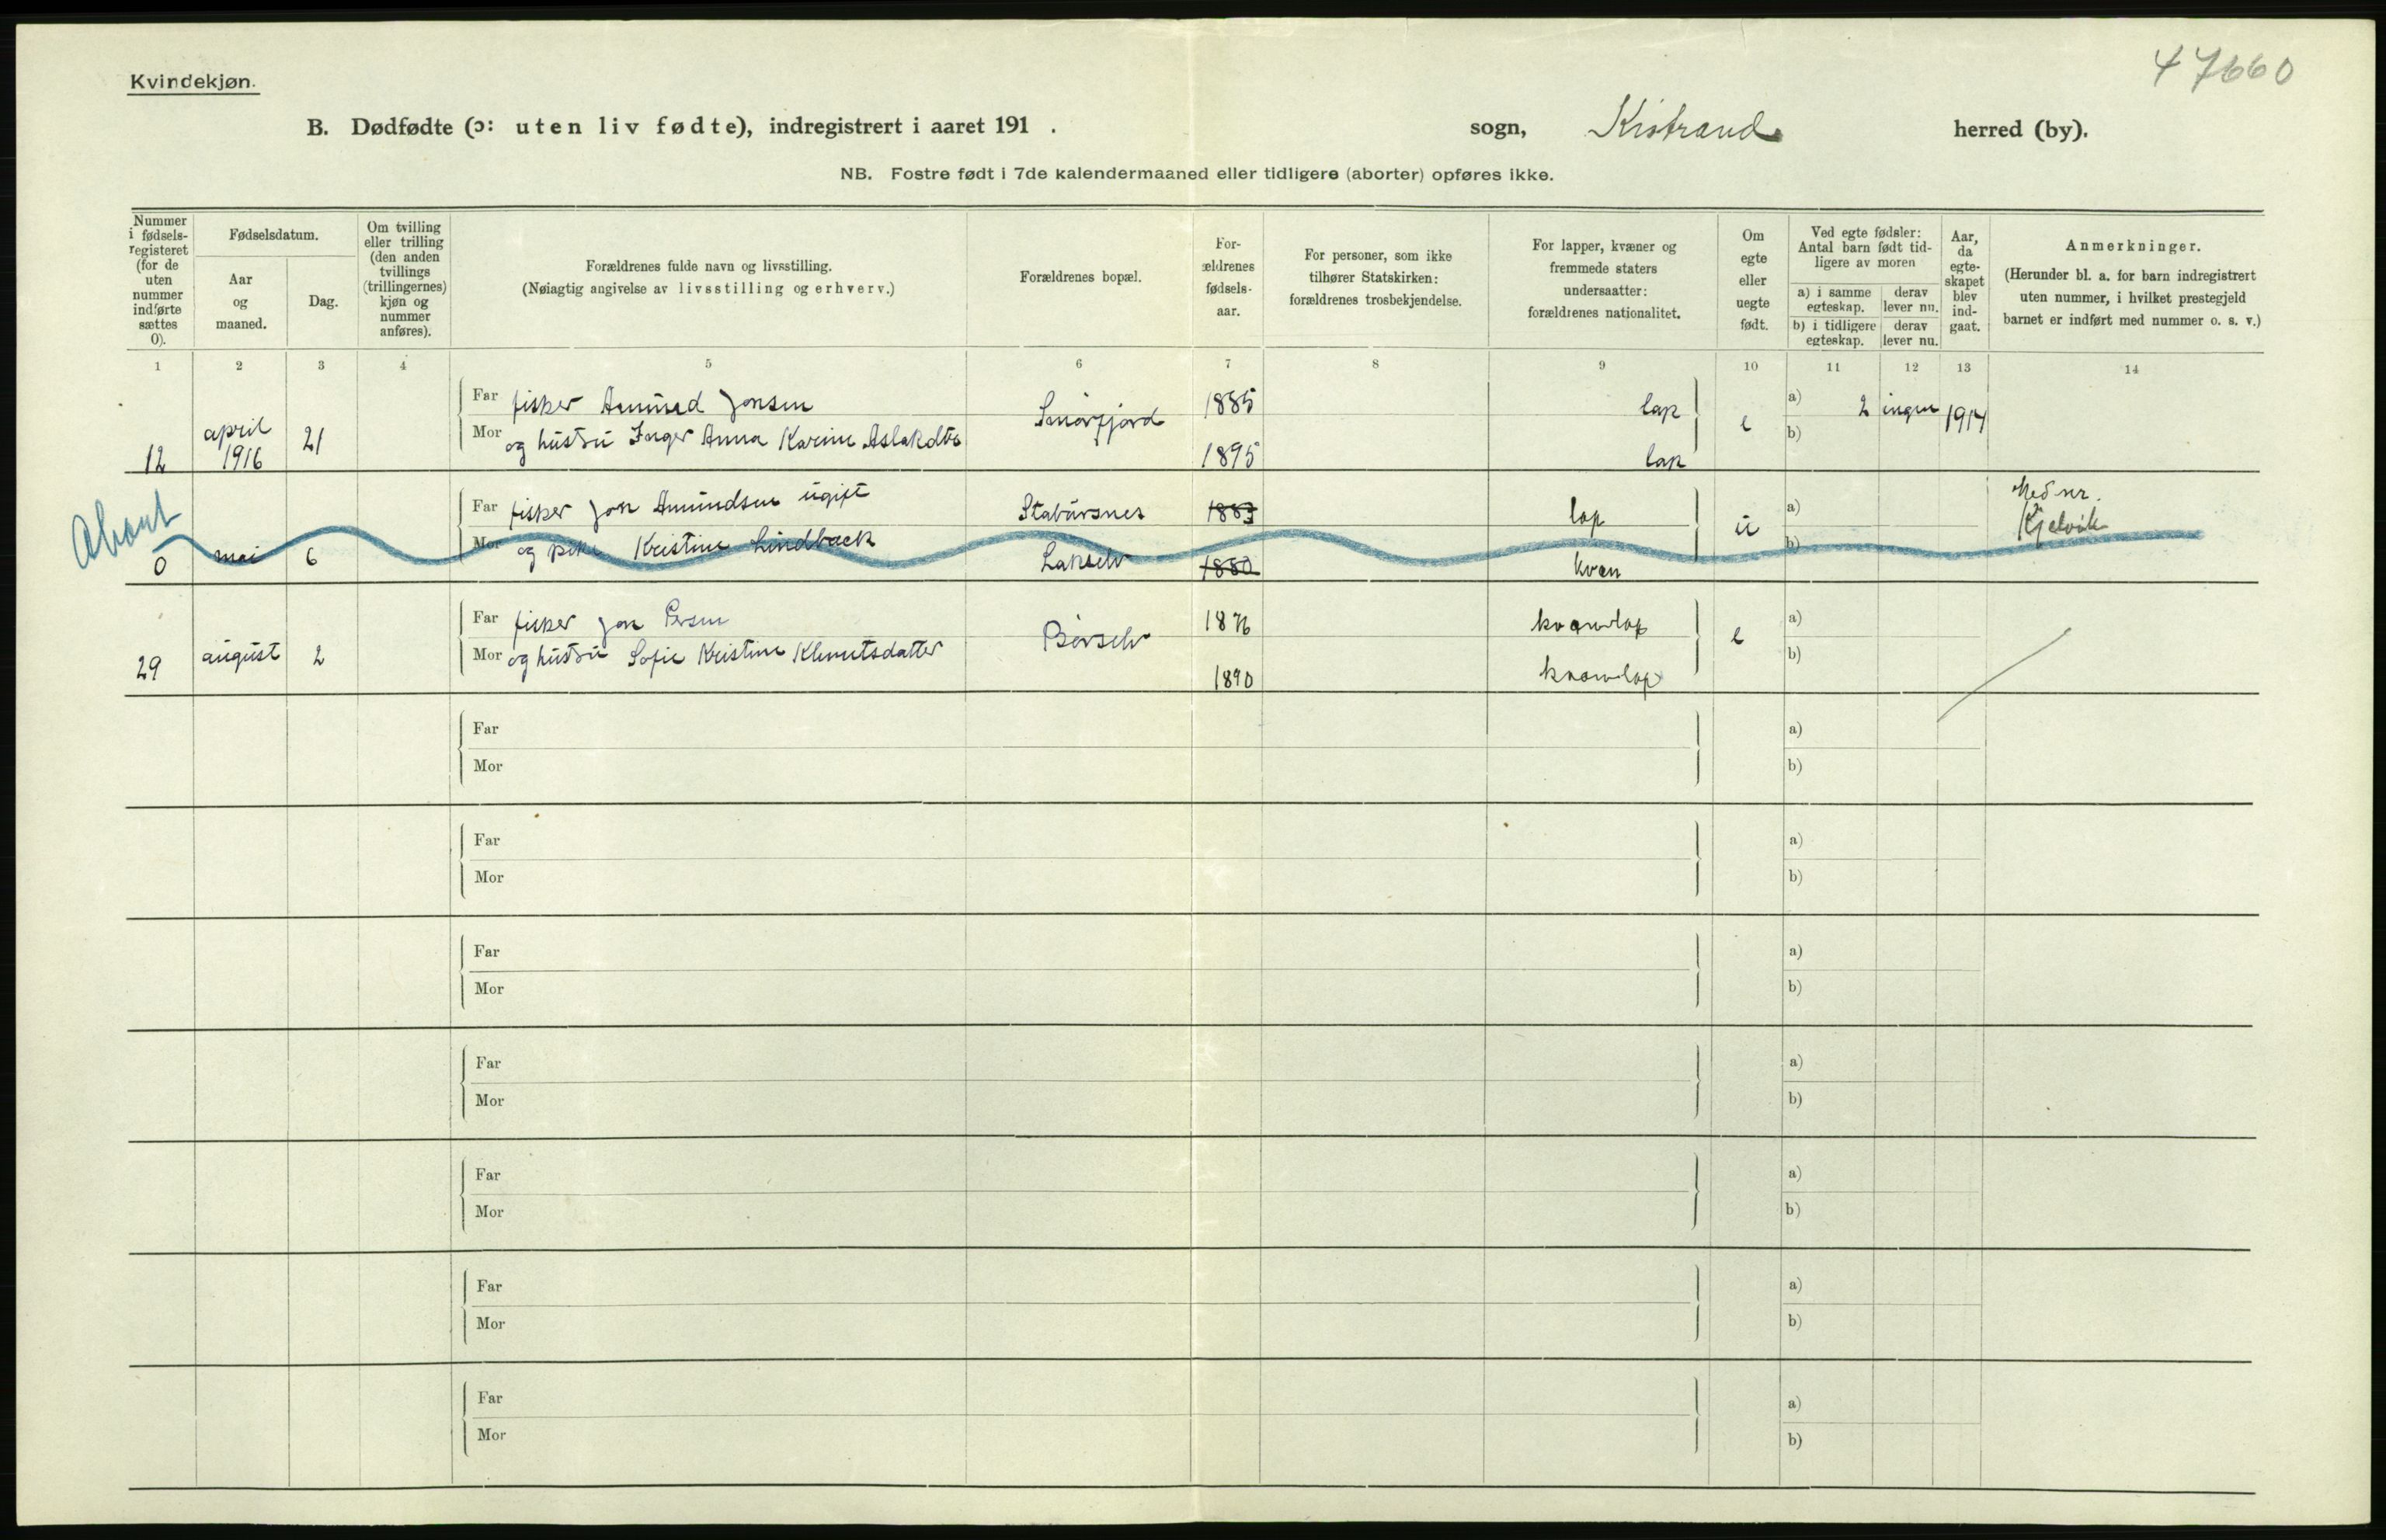 47660
Kvindekjøn.
B. Dødfødte (ɔ: uten liv fødte), indregistrert i aaret 191 . sogn, Kistrand herred (by).
NB. Fostre født i 7de kalendermaaned eller tidligere (aborter) opføres ikke.
Nummer i fødsels-registeret (for de uten nummer indførte sættes 0).
Fødselsdatum.
Aar og maaned.
Dag.
Om tvilling eller trilling (den anden tvillings (trillingernes) kjøn og nummer anføres).
Forældrenes fulde navn og livsstilling.
(Nøiagtig angivelse av livsstilling og erhverv.)
Forældrenes bopæl.
For-ældrenes fødsels-aar.
For personer, som ikke tilhører Statskirken: forældrenes trosbekjendelse.
For lapper, kvæner og fremmede staters undersaatter: forældrenes nationalitet.
Om egte eller uegte født.
Ved egte fødsler: Antal barn født tid-ligere av moren
a) i samme egteskap.
derav lever nu.
b) i tidligere egteskap.
derav lever nu.
Aar, da egte-skapet blev ind-gaat.
Anmerkninger.
(Herunder bl. a. for barn indregistrert uten nummer, i hvilket prestegjeld barnet er indført med nummer o. s. v.)
1 2 3 4 5 6 7 8 9 10 11 12 13 14
Far fisker Amund Jonsen Smørfjord 1885 lap a) 2 ingen 1914
12 april 1916 21 Mor og hustru Inger Anna Karine Aslaksdtr 1895 lap e b)
Abort
Far fisker Jon Amundsen ugift Stabursnes 1883 lap u a) Med nr. i Kjelvik
0 mai 6 Mor og pike Kristine Lindback Lakselv 1880 kven b)
Far fisker Jon Persen Børselv 1876 kvænlap e a)
29 august 2 Mor og hustru Sofie Kristine Klemetsdatter 1890 kvænlap b)
Far a)
Mor b)
Far a)
Mor b)
Far a)
Mor b)
Far a)
Mor b)
Far a)
Mor b)
Far a)
Mor b)
Far a)
Mor b)